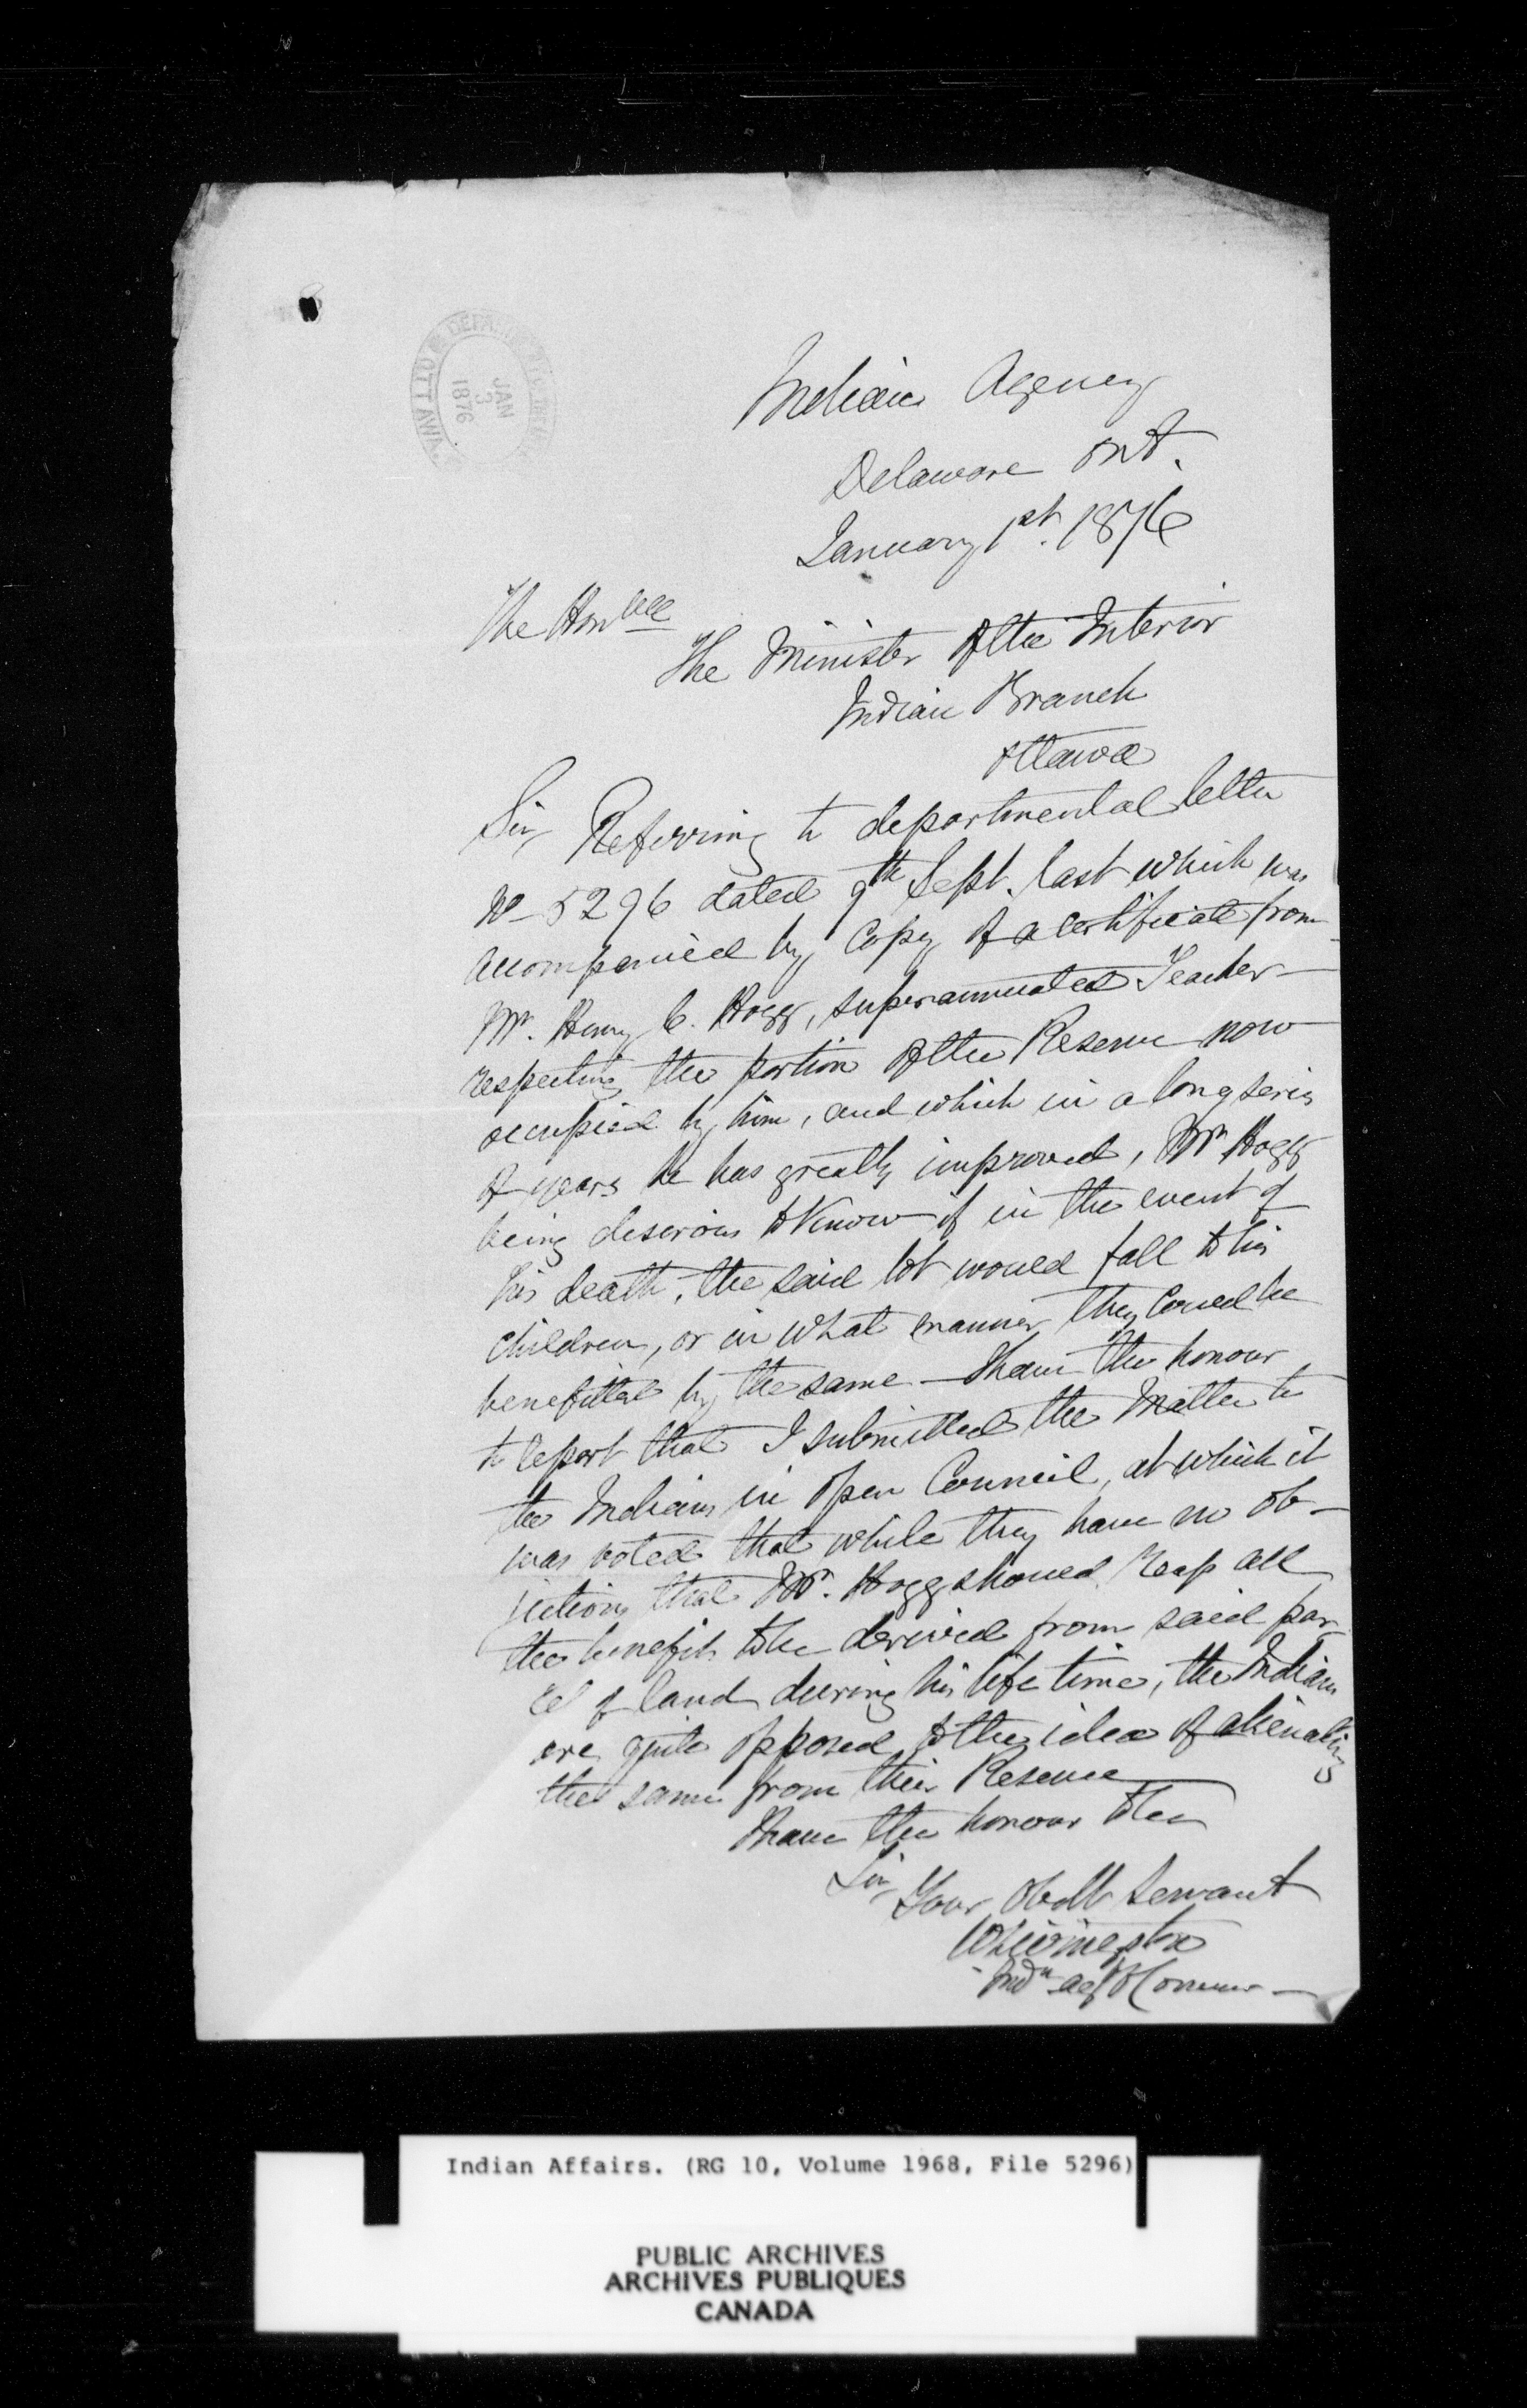 DEPART OTTAWA
JAN
3
1876
Indian Agency
Delaware Ont.
January 1st. 1876
The Honble
The Minister of the Interior
Indian Branch
Ottawa
Sir, Referring to departmental letter
No 5296 dated 9th Sept. last which was
accompanied by Copy of a certificate from
Mr. Henry C. Hogg, superannuated Teacher
respecting the portion of the Reserve now
occupied by him, and which in a long series
of years he has greatly improved, Mr Hogg
being desirous to Know if in the event of
his death, the said lot would fall to his
children, or in what manner they could be
benefitted by the same - I have the honour
to report that I submitted the Matter to
the Indians in open Council, at which it
was voted that while they have no ob-
jection that Mr. Hogg should reap all
the benefits to be derived from said par-
cel of land during his life time, the Indians
are quite opposed to the idea of alienating
the same from their Reserve
I have the honour to be
Sir,
Your Obdt Servant
W Livingston
Indn
Indian Affairs. (RG 10, Volume 1968, File 5296)
PUBLIC ARCHIVES
ARCHIVES PUBLIQUES
CANADA